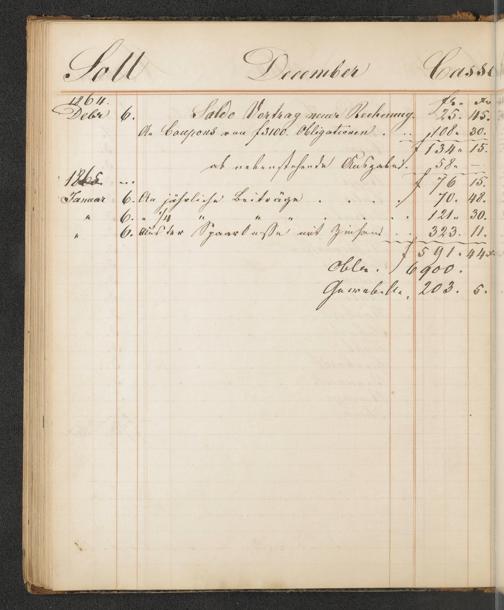 Soll December Cassa
1864. fr. xr.
Debr 6. Saldo Vortrag neuer Rechnung. 25. 45.
An Coupons von f3100. Obligationen . . 108. 30.
f 134. 15.
ab nebenstehende Ausgaben. 58. –
1865. ... f 76 15.
Januar 6. An jährliche Beiträge . . . . 70. 48.
" 6. " 1/4 " " " . . . 121. 30.
" 6. Aus der Sparkasse mit Zinsen . . 323. 11.
f 591. 44
Oblig. 6900.
203. 5.